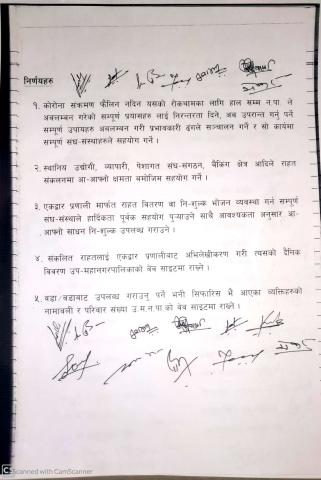 निर्णयहरु
१. कोरोना संक्रमण फैलिन नदिन यसको रोकथामका लागि हाल सम्म न.पा. ले
अवलम्बन गरेको सम्पूर्ण प्रयासहरु लाई निरन्तरता दिने, अब उपरान्त गर्नु पर्ने
सम्पूर्ण उपायहरु अवलम्बन गरी प्रभावकारी ढंगले सञ्चालन गर्ने र सो कार्यमा
सम्पूर्ण संघ-संस्थाहरुले सहयोग गर्ने ।
२. स्थानिय उद्योगी, व्यापारी, पेशागत संघ-संगठन, बैंकिंग क्षेत्र आदिले राहत
संकलनमा आ-आफ्नो क्षमता बमोजिम सहयोग गर्ने ।
३. एकद्वार प्रणाली मार्फत राहत वितरण वा नि-शुल्क भोजन व्यवस्था गर्न सम्पूर्ण
संघ-संस्थाले हार्दिकता पूर्वक सहयोग पुर्‍याउने साथै आवश्यकता अनुसार आ-
आफ्नो साधन नि-शुल्क उपलब्ध गराउने ।
४. संकलित राहतलाई एकद्वार प्रणालीबाट अभिलेखीकरण गरी त्यसको दैनिक
बिवरण उप-महानगरपालिकाको वेब साइटमा राख्ने ।
५. वडा/वडाबाट उपलब्ध गराउनु पर्ने भनी सिफारिस भै आएका व्यक्तिहरुको
नामावली र परिवार संख्या उ.म.न.पा.को वेब साइटमा राख्ने ।
CS Scanned with CamScanner